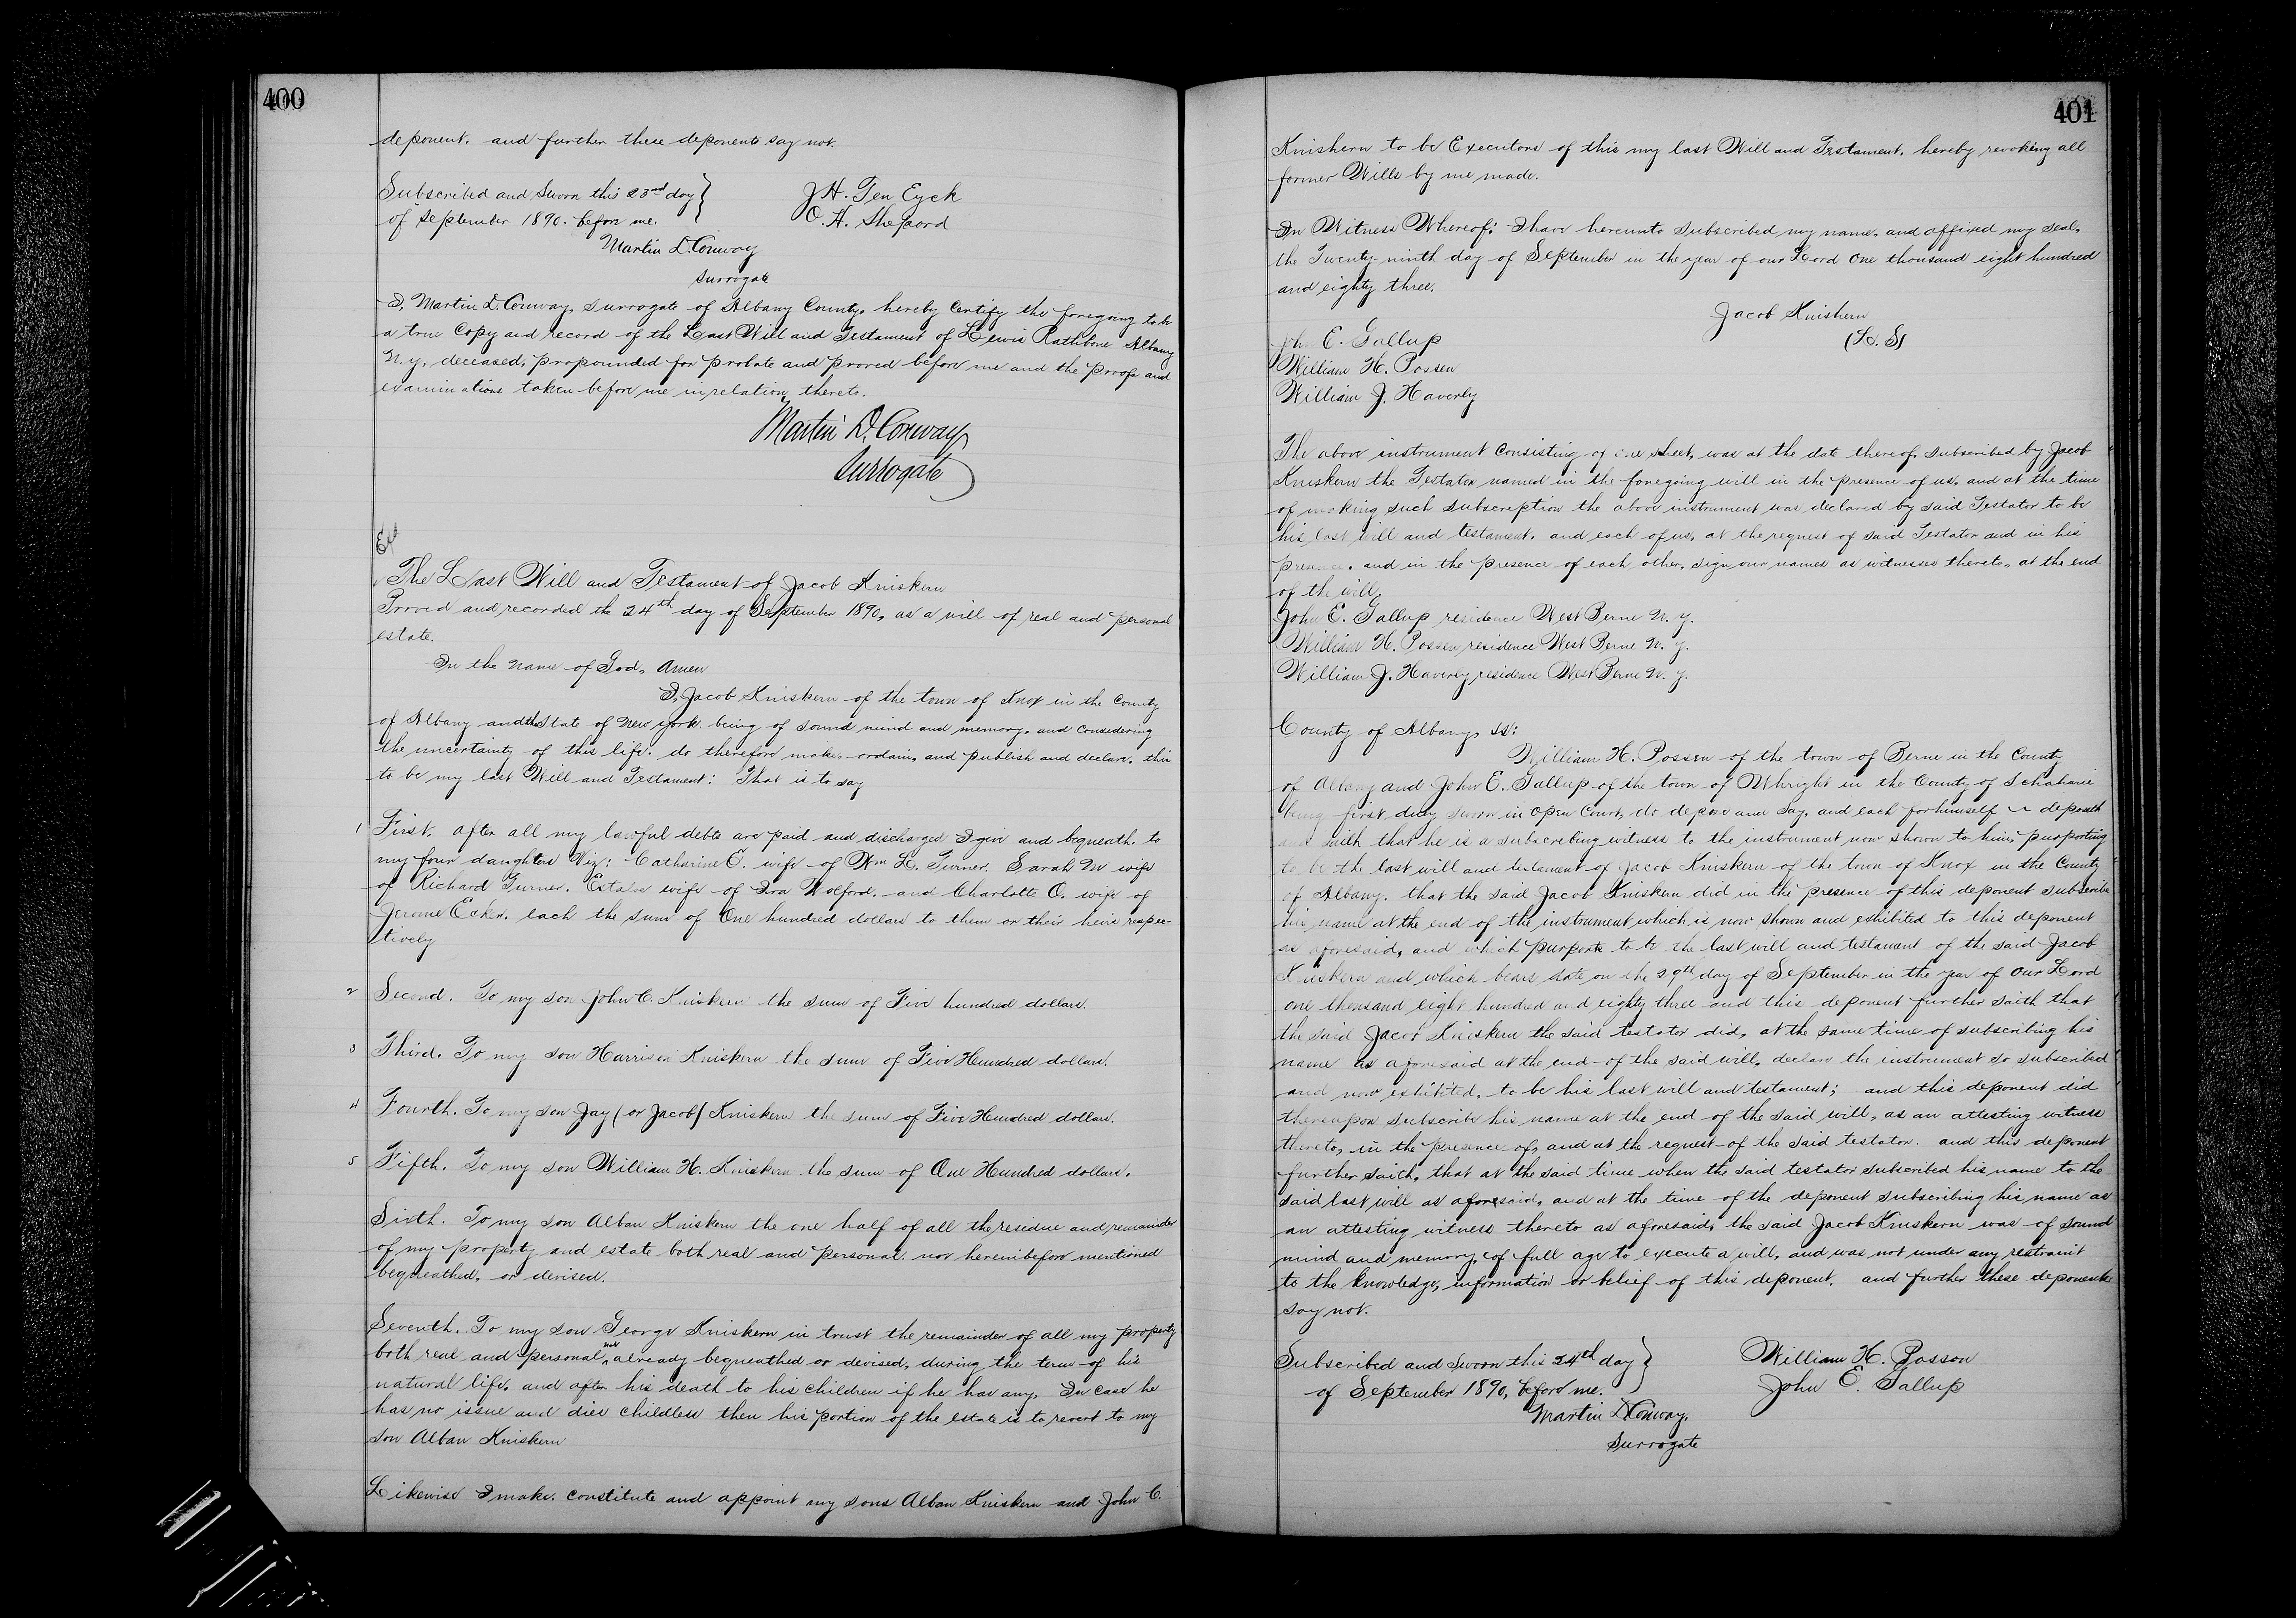 400
deponent. and further these deponents say not.
Subscribed and Sworn this 23rd day
of September 1890. before me.
J. H. Ten Eyck
O. H. Shepard
Martin D. Conway
Surrogate
I, Martin D. Conway, Surrogate of Albany County, hereby Certify the foregoing to be
a true Copy and record of the Last Will and Testament of Lewis Rathbone Albany
N. Y. deceased, propounded for probate and proved before me and the proofs and
examinations taken before me in relation thereto.
Martin D. Conway
Surrogate
The Last Will and Testament of Jacob Kniskern
Proved and recorded the 24th day of September 1890, as a will of real and personal
estate.
In the name of God, Amen
I, Jacob Kniskern of the town of Knox in the County
of Albany and the State of New York being of sound mind and memory, and Considering
the uncertainty of this life. do therefore make, ordain, and publish and declare, this
to be my last Will and Testament: That is to say
1 First. After all my lawful debts are paid and discharged I give and bequeath. to
my four daughters Viz: Catharine E. wife of Wm L. Turner. Sarah M wife
of Richard Turner. Estalin wife of Ira Wolford. and Charlotte O. wife of
Jerome Ecker. each the sum of One hundred dollars to them or their heirs respec-
tively
2 Second. To my son John C. Kniskern the sum of Five hundred dollars.
3 Third. To my son Harrison Kniskern the sum of Five Hundred dollars.
4 Fourth. To my son Jay (or Jacob) Kniskern the sum of Five Hundred dollars.
5 Fifth. To my son William H. Kniskern the sum of One Hundred dollars.
Sixth. To my son Alban Kniskern the one half of all the residue and remainder
of my property and estate both real and personal. nor hereinbefore mentioned
bequeathed, or devised.
Seventh. To my son George Kniskern in trust the remainder of all my property
both real and personal, not already bequeathed or devised, during the term of his
natural life, and after his death to his children if he hav any, In case he
has no issue and dies childless then his portion of the estate is to revert to my
son Alban Kniskern
Likewise I make. Constitute and appoint my sons Alban Kniskern and John C.
401
Kniskern to be Executors of this my last Will and Testament, hereby revoking all
former Wills by me made.
In Witness Whereof; I have hereunto subscribed my name, and affixed my seal,
the Twenty-ninth day of September in the year of our Lord One thousand eight hundred
and eighty three.
Jacob Kniskern
(L. S)
John E. Gallup
William H. Possen
William J. Haverly
The above instrument Consisting of one sheet, was at the date thereof, subscribed by Jacob
Kniskern the Testator named in the foregoing will in the presence of us, and at the time
of making such subscription the above instrument was declared by said Testator to be
his last will and testament. and each of us, at the request of said Testator and in his
presence. and in the presence of each other, sign our names as witnesses thereto, at the end
of the will.
John E. Gallup residence West Berne N. Y.
William H. Possen residence West Berne N. Y.
William J. Haverly residence West Berne N. Y.
County of Albany, ss:
William H. Possen of the town of Berne in the County
of Albany and John E. Gallup of the town of Whright in the County of Schoharie
being first duly sworn in open Court, do depose and say, and each for himself deposeth
and saith that he is a subscribing witness to the instrument now shown to him, purporting
to be the last will and testament of Jacob Kniskern of the town of Knox in the County
of Albany. that the said Jacob Kniskern did in the presence of this deponent subscribe
his name at the end of the instrument which is now shown and exhibited to this deponent
as aforesaid, and which purports to be the last will and testament of the said Jacob
Kniskern and which bears date on the 29th day of September in the year of our Lord
one thousand eight hundred and eighty three and this deponent further saith that
the said Jacob Kniskern the said testator did, at the same time of subscribing his
name as aforesaid at the end of the said will, declare the instrument so subscribed
and now exhibited, to be his last will and testament; and this deponent did
thereupon subscribe his name at the end of the said will, as an attesting witness
thereto, in the presence of, and at the request of the said testator. and this deponent
further saith, that at the said time when the said testator subscribed his name to the
said last will as aforesaid, and at the time of the deponent subscribing his name as
an attesting witness thereto as aforesaid, the said Jacob Kniskern was of sound
mind and memory, of full age to execute a will, and was not under any restraint
to the knowledge, information or belief of this deponent. and further these deponents
say not.
Subscribed and Sworn this 24th day
of September 1890, before me.
William H. Posson
John E. Gallup
Martin D. Conway.
Surrogate